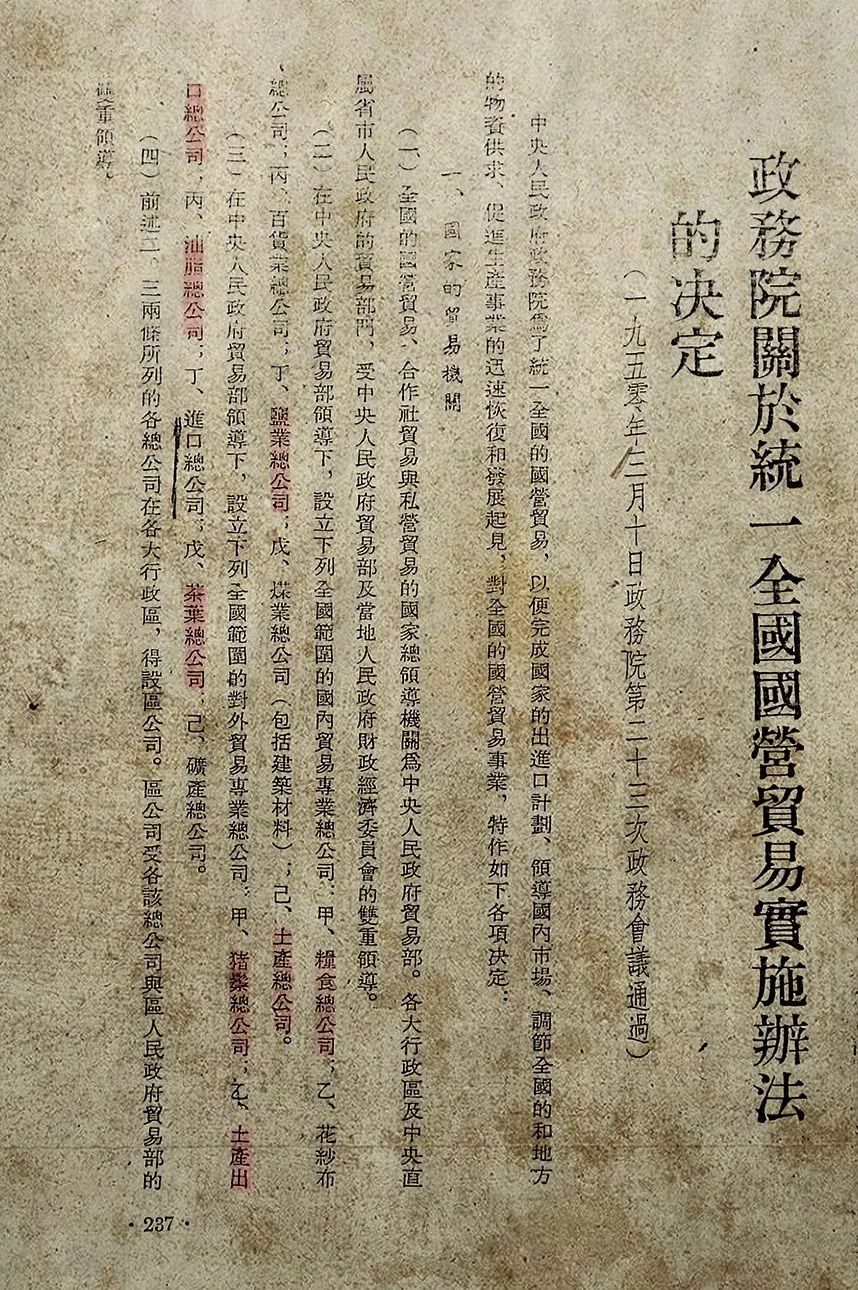 政務院關於統一全國國營貿易實施辦法
的决定
（一九五零年三月十日政務院第二十三次政務會議通過）
中央人民政府政務院爲了統一全國的國營貿易，以便完成國家的出進口計劃、領導國內市場、調節全國的和地方
的物資供求、促進生產事業的迅速恢復和發展起見，對全國的國營貿易事業，特作如下各項决定：
一、國家的貿易機關
（一）全國的國營貿易、合作社貿易與私營貿易的國家總領導機關爲中央人民政府貿易部。各大行政區及中央直
屬省市人民政府的貿易部門，受中央人民政府貿易部及當地人民政府財政經濟委員會的雙重領導。
（二）在中央人民政府貿易部領導下，設立下列全國範圍的國內貿易專業總公司：甲、糧食總公司；乙、花紗布
總公司；丙、百貨業總公司；丁、鹽業總公司；戊、煤業總公司（包括建築材料）；己、土產總公司。
（三）在中央人民政府貿易部領導下，設立下列全國範圍的對外貿易專業總公司：甲、猪鬃總公司；乙、土產出
口總公司；丙、油脂總公司；丁、進口總公司；戊、茶葉總公司；己、礦產總公司。
（四）前述二、三兩條所列的各總公司在各大行政區，得設區公司。區公司受各該總公司與區人民政府貿易部的
雙重領導。
·237·